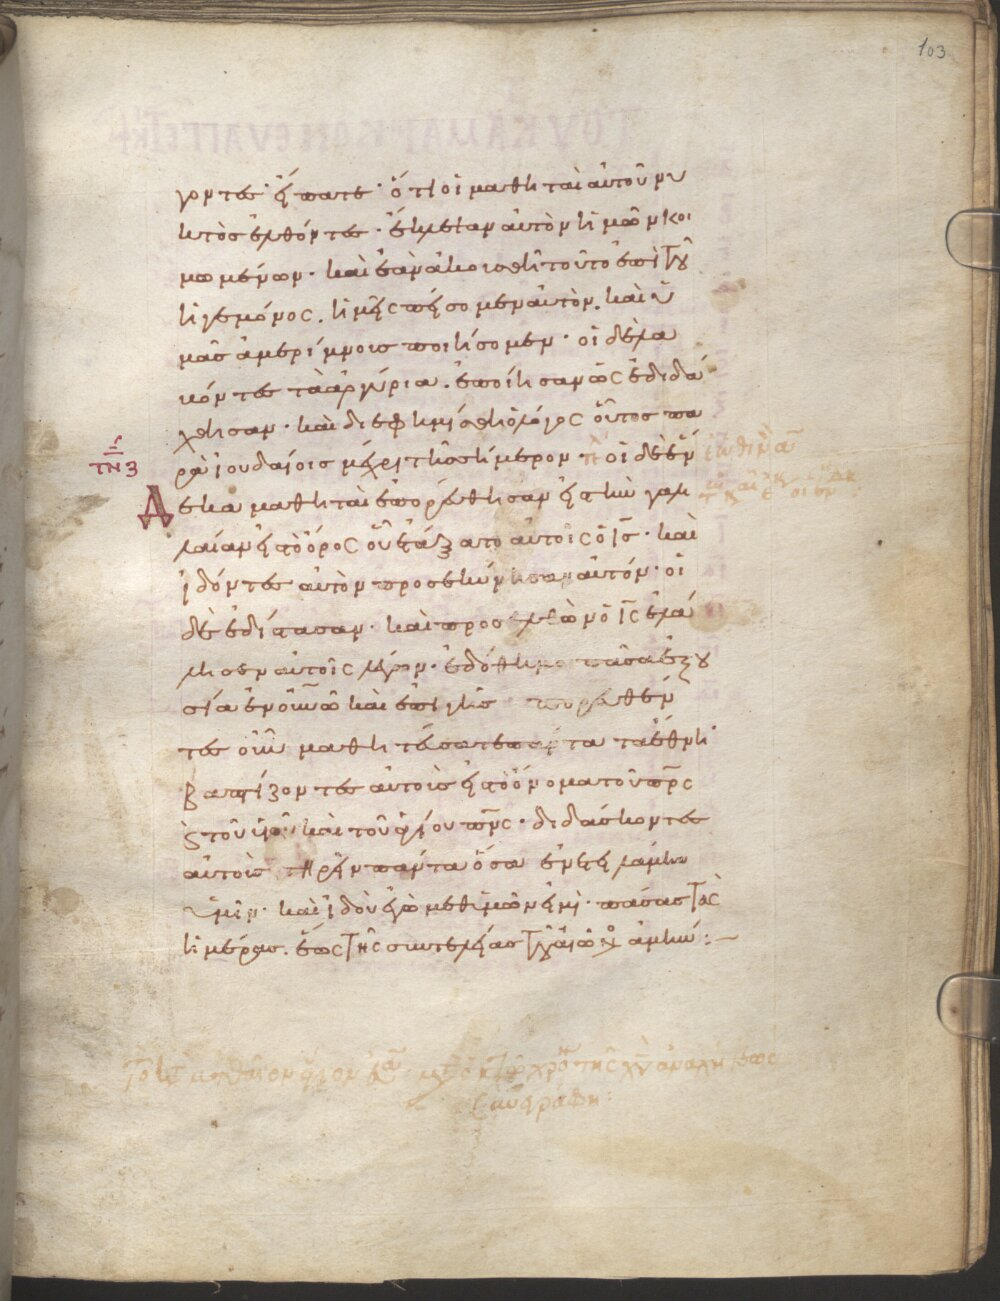 103
γοντες· εἴπατε· ὅτι οἱ μαθηταὶ αὐτοῦ νυ
κτὸς ἐλθόντες· ἔκλεψαν αὐτὸν ἡμῶν κοι
μωμένων· καὶ ἐὰν ἀκουσθῆ τοῦτο ἐπὶ τοῦ
ἡγεμόνος. ἡμεῖς πείσομεν αὐτὸν. καὶ ὑ
μᾶς ἀμερίμνους ποιήσομεν· οἱ δὲ λα
βόντες τὰ ἀργύρια. ἐποίησαν ὡς ἐδιδά
χθησαν· καὶ διεφημίσθη ὁ λόγος οὗτος πα
ρὰ ἰουδαίοις μέχρι τῆς σήμερον· οἱ δὲ ἕν
τνζ
δεκα μαθηταὶ ἐπορεύθησαν εἰς τὴν γαλι
λαίαν εἰς τὸ ὄρος οὗ ἐτάξατο αὐτοῖς ὁ ις· καὶ
ἰδόντες αὐτὸν προσεκύνησαν αὐτόν· οἱ
δὲ ἐδίστασαν· καὶ προσελθὼν ὁ ις ἐλά
λησεν αὐτοῖς λέγων· ἐδόθη μοι πᾶσα ἐξου
σία ἐν οὐνῶ καὶ ἐπὶ γῆς πορευθέν
τες οὖν μαθητεύσατε πάντα τὰ ἔθνη·
βαπτίζοντες αὐτοὺς εἰς τὸ ὄνομα τοῦ πρς
καὶ τοῦ υἱοῦ καὶ τοῦ ἁγίου πνς· διδάσκοντες
αὐτοὺς τηρεῖν πάντα ὅσα ἐνετειλάμην
ὑμῖν· καὶ ἰδοὺ ἐγὼ μεθ' ὑμῶν εἰμὶ· πάσας τὰς
ἡμέρας. ἕως τῆς συντελείας τοῦ αἰῶνος ἀμήν: